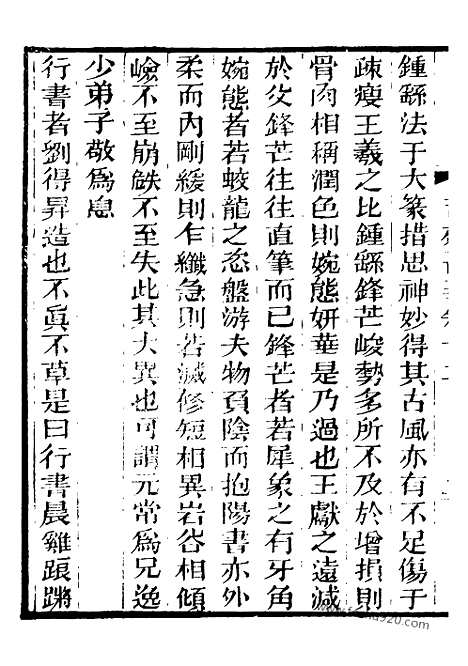 鍾繇法于大篆措思神妙得其古風亦有不足傷于
疎瘦王羲之比鍾繇鋒芒峻勢多所不及於增損則
骨肉相稱潤色則婉態妍華是乃過也王獻之遠減
於父鋒芒往往直筆而已鋒芒者若犀象之有牙角
婉態者若蛟龍之恣盤游夫物負陰而抱陽書亦外
柔而內剛緩則乍纖急則若滅修短相異岩谷相傾
嶮不至崩缺不至失此其大異也可謂元常為兄逸
少弟子敬為息
行書者劉得昇造也不眞不草是曰行書晨雞踉蹡